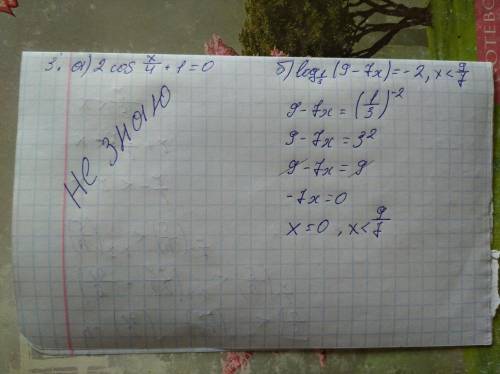 3. а) 2 cos x/4 + 1 = 0
Не знаю
б) log_{1/3} (9 - 7x) = -2, x < 9/7
9 - 7x = (1/3)^{-2}
9 - 7x = 3²
9 - 7x = 9
-7x = 0
x = 0, x < 9/7